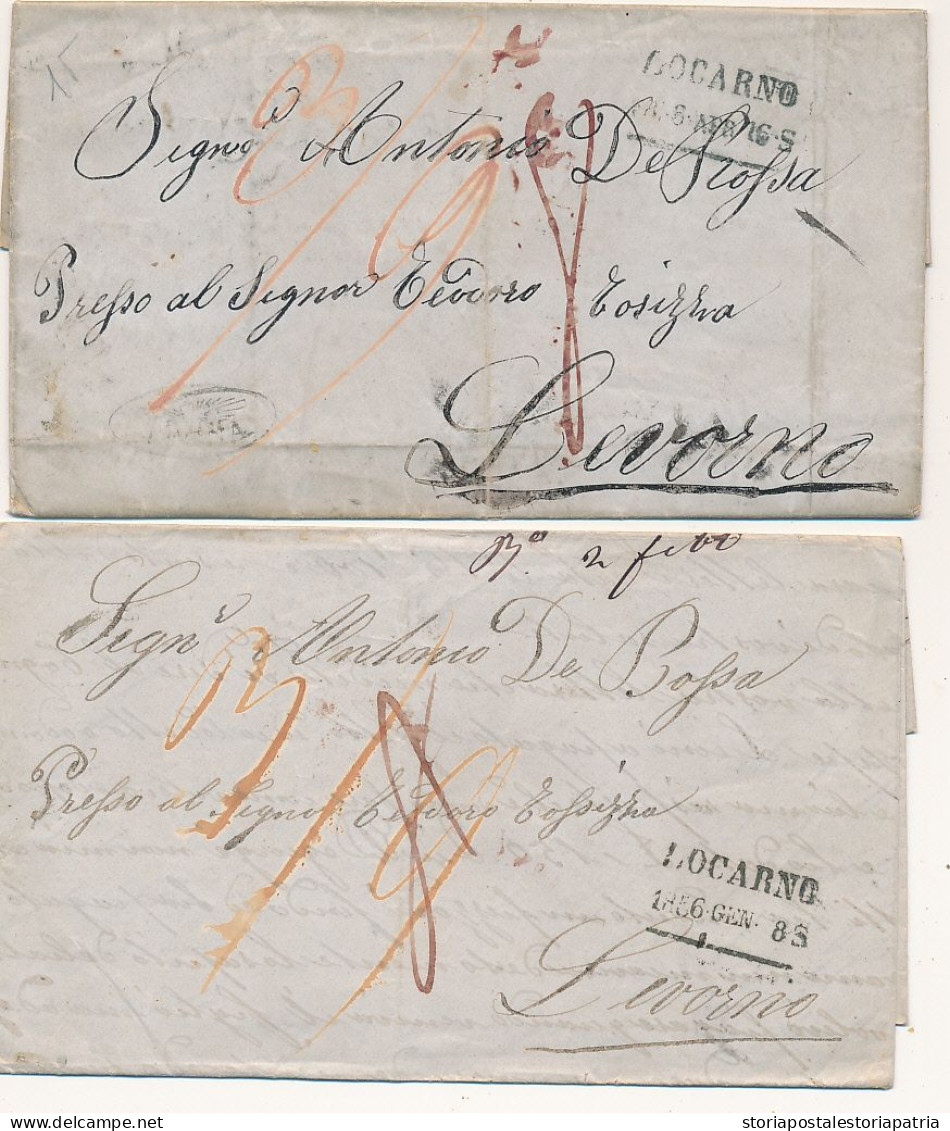 15
LOCARNO
Sign.e Antonio De Rossa
Presso al Signor Teodoro Tosizza
3/9
8
Livorno
R.a 2 febb
Sign.e Antonio De Rossa
3/9
8
Presso al Signor Teodoro Tossizza
LOCARNO
1856·GEN· 8 S
Livorno
storiapostalestoriapatria